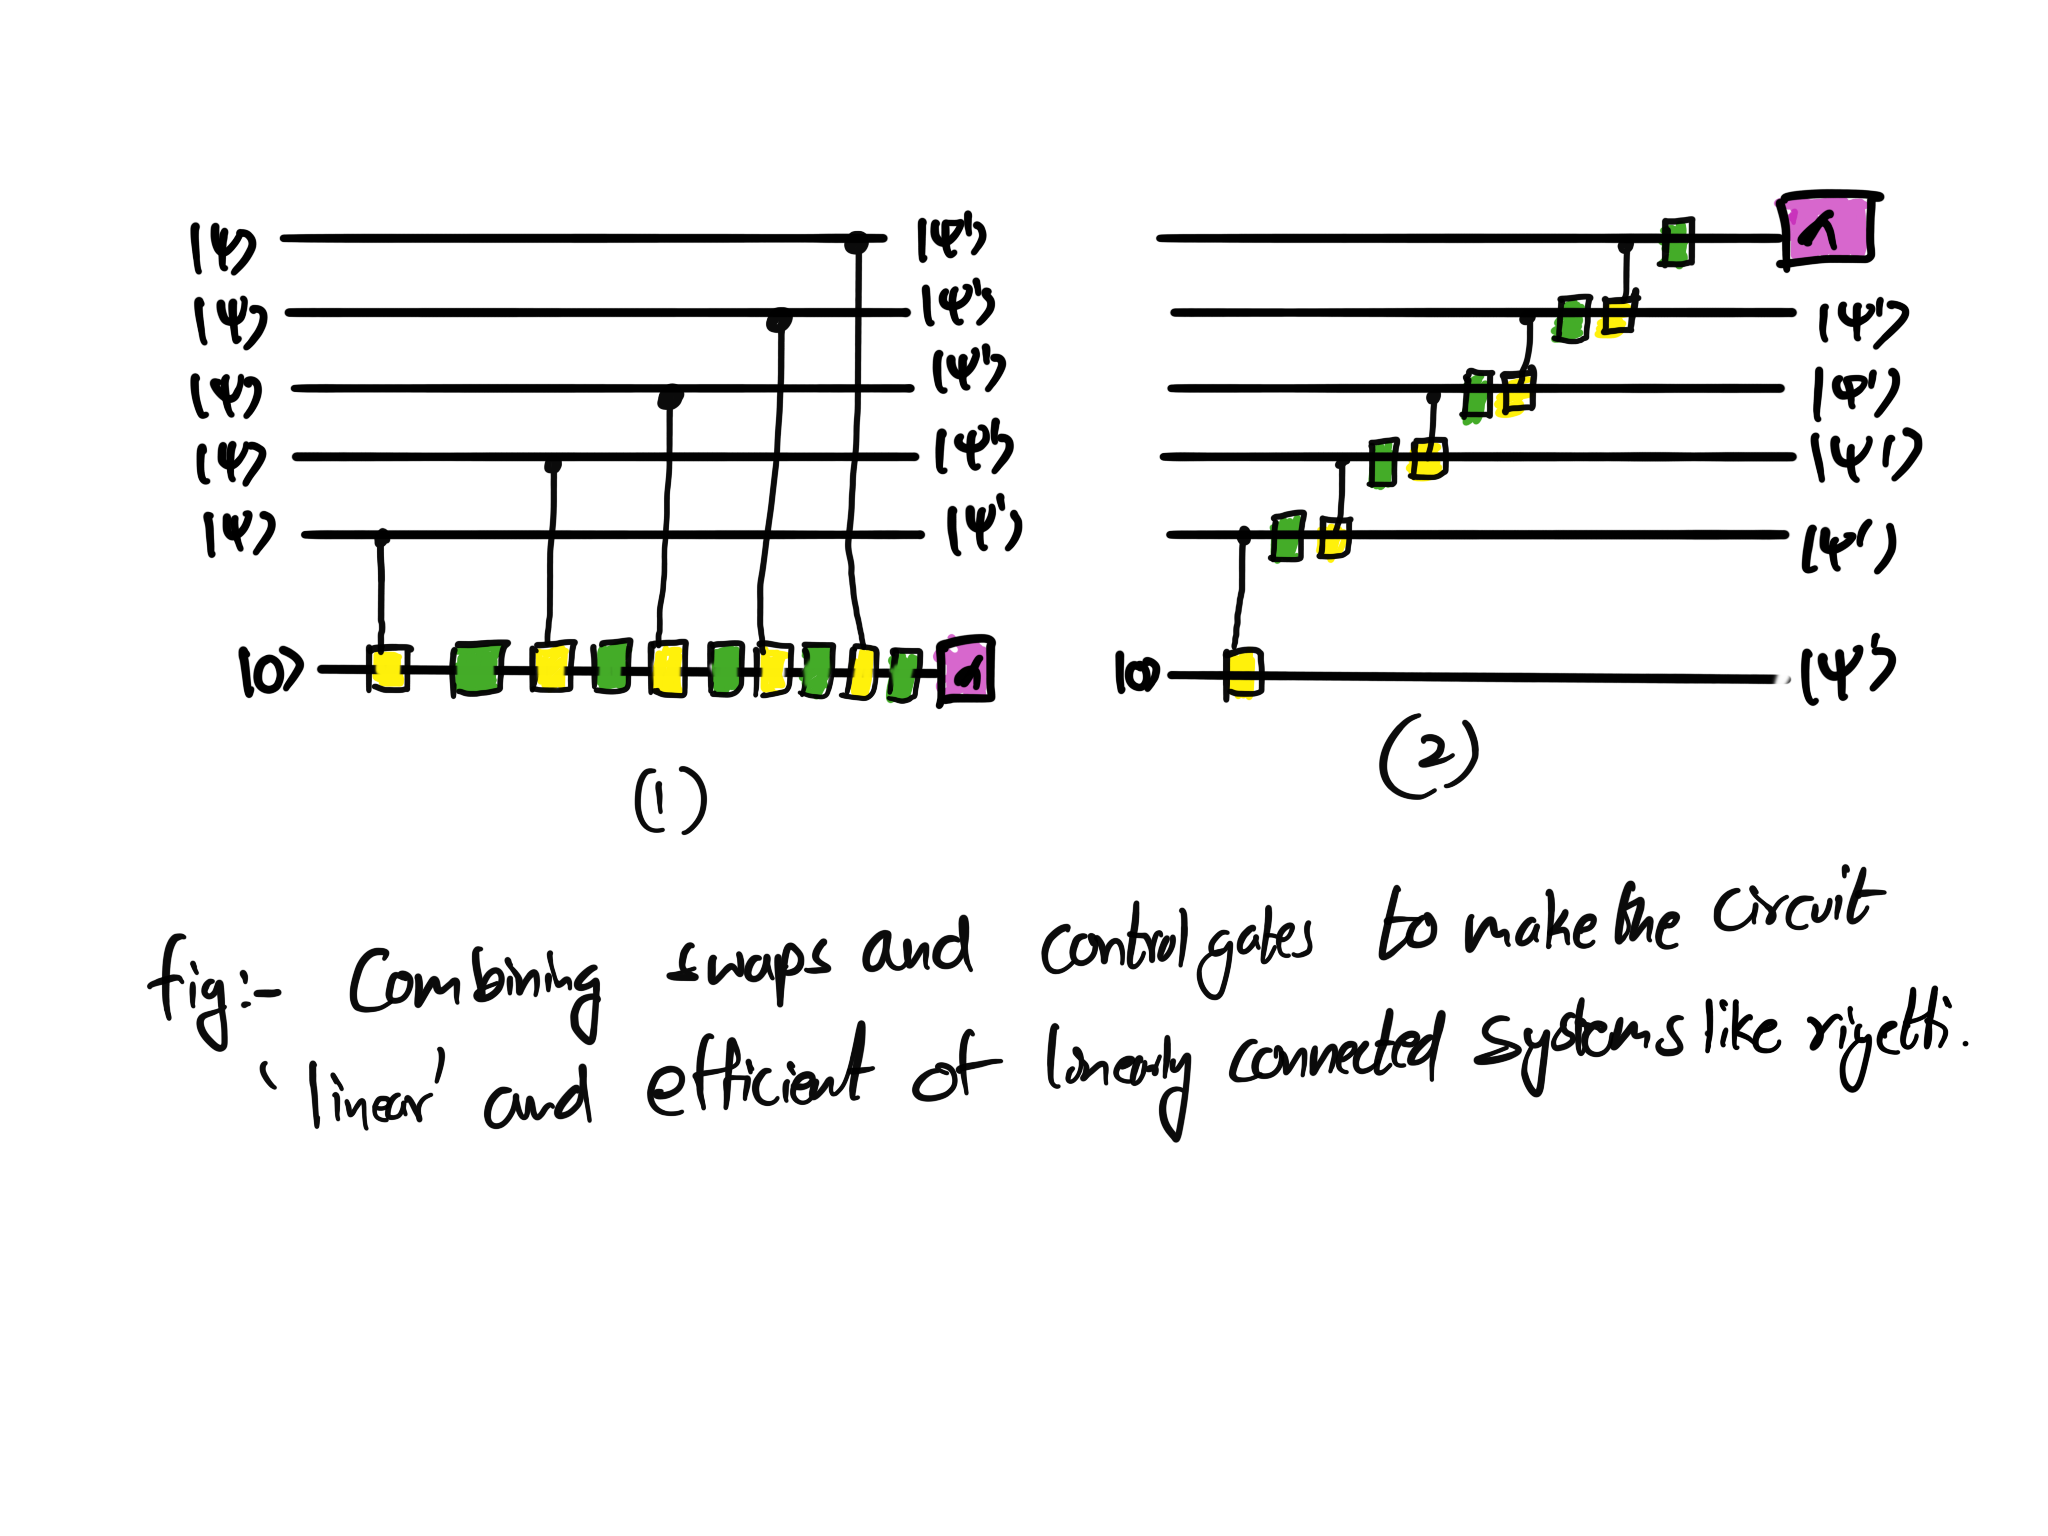 |ψ⟩ |ψ'⟩
|ψ⟩ |ψ'⟩ |ψ'⟩
|ψ⟩ |ψ'⟩ |ψ'⟩
|ψ⟩ |ψ'⟩ |ψ'⟩
|ψ⟩ |ψ'⟩ |ψ'⟩
|0⟩ |0⟩ |ψ'⟩
(1) (2)
fig:- Combining swaps and control gates to make the circuit
'linear' and efficient of linearly connected systems like rigetti.